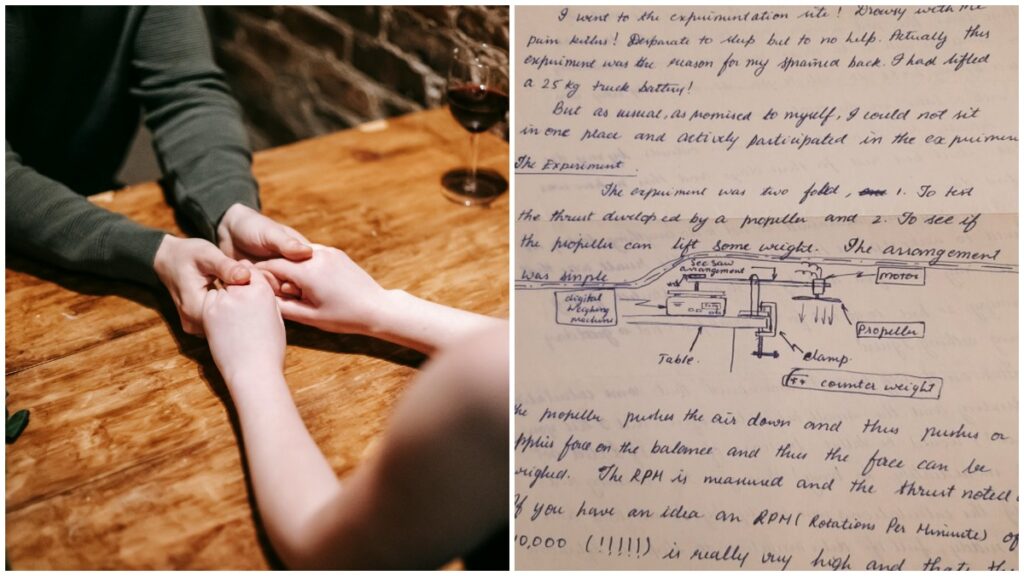 I went to the experimentation site! Drowsy with the
pain killers! Desparate to sleep but to no help. Actually this
experiment was the reason for my sprained back. I had lifted
a 25 kg truck battery!
But as usual, as promised to myself, I could not sit
in one place and actively participated in the experimen
The Experiment
The experiment was two fold, 1. To test
the thrust developed by a propeller and 2. To see if
the propeller can lift some weight. The arrangement
was simple
see saw
arrangement
motor
digital
weighing
machine
Propeller
Table.
clamp.
** counter weight
the propeller pushes the air down and thus pushes or
pplies force on the balance and thus the force can be
weighed. The RPM is measured and the thrust noted
If you have an idea an RPM (Rotations Per Mininute) of
10,000 (!!!!!) is really very high and thats the